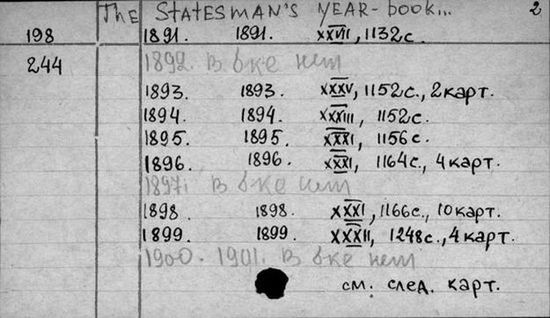 The STATESMAN'S YEAR-book... 2
198 1891. 1891. XXVII, 1132с.
244 1892. В б-ке нет
1893. 1893. XXXV, 1152с., 2 карт.
1894. 1894. XXXIII, 1152с.
1895. 1895. XXXI, 1156с.
1896. 1896. XXXI, 1164с., 4 карт.
1897. В б-ке нет
1898 1898. XXXI, 1166с., 10 карт.
1899. 1899. XXXII, 1248с., 4 карт.
1900. 1901. В б-ке нет
см. след. карт.